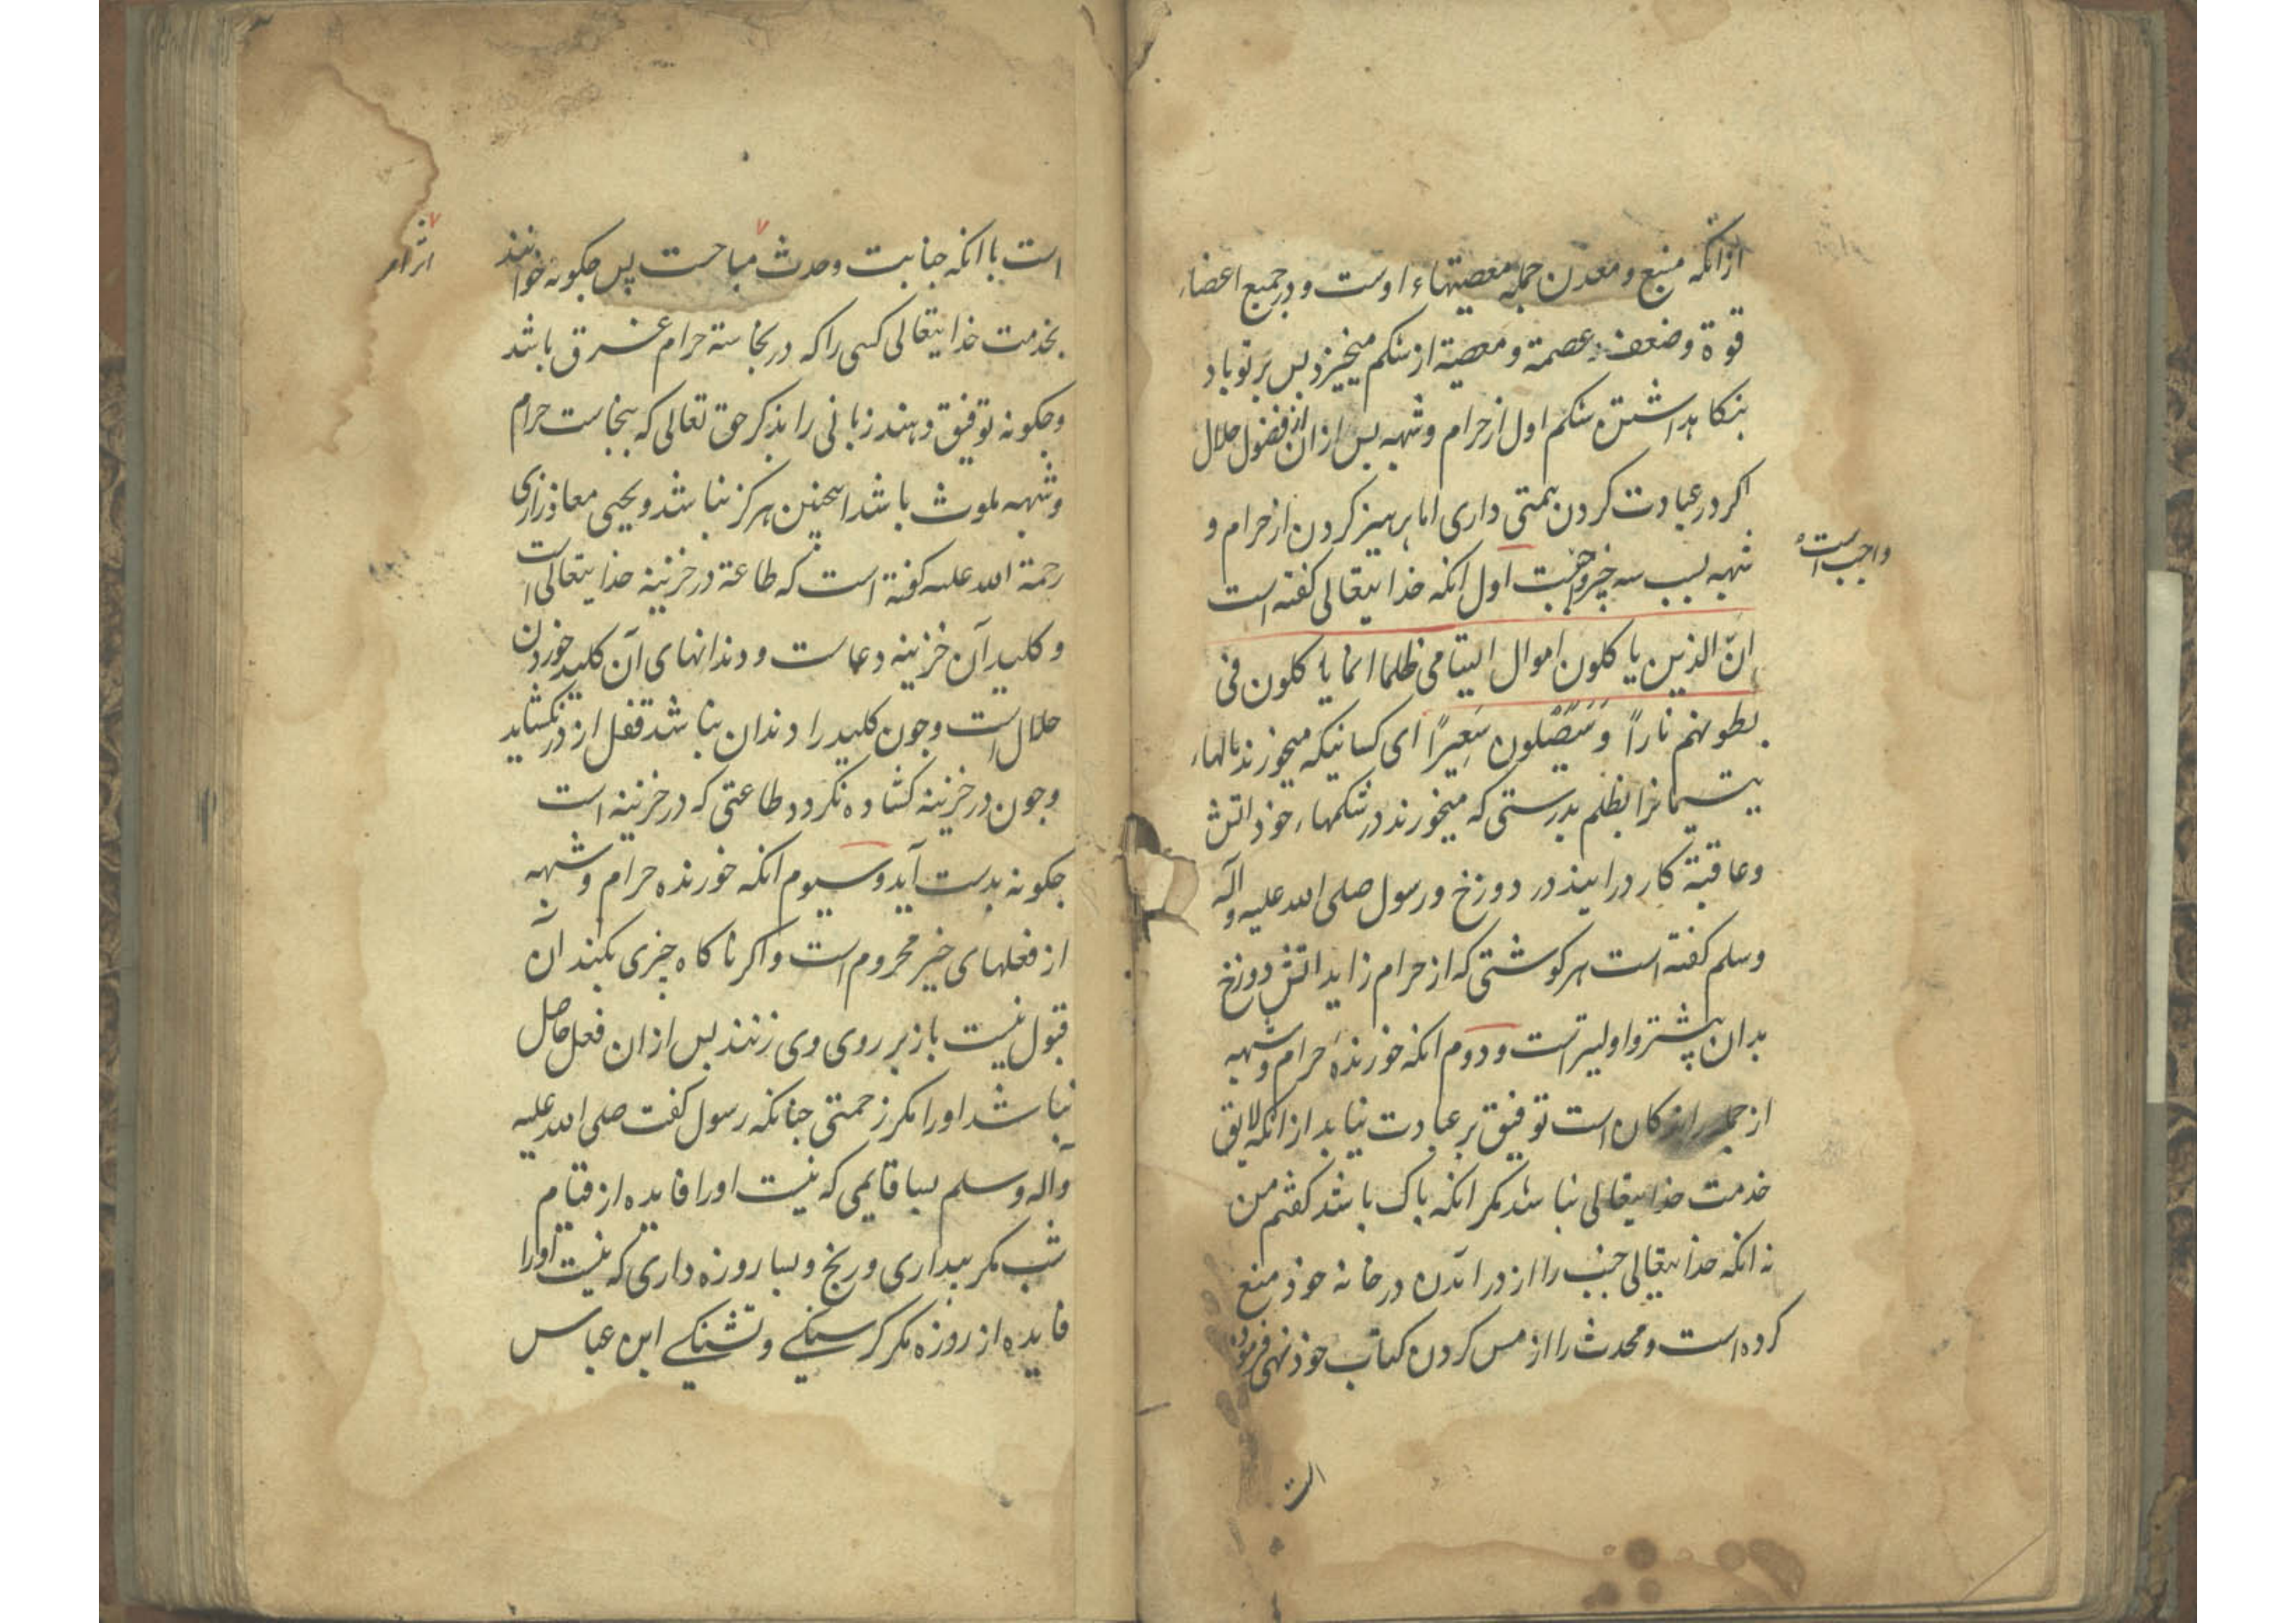 ازانکه منبع و معدن جمله معصیتهاء اوست و در جمیع اعضاء
قوة و ضعف و عصمة و معصیة از شکم میخیزد بس بر تو باد
بنکاهداشتن شکم اول از حرام و شبهه بس ازان از فضول حلال
اکر در عبادت کردن همتی داری اما برهیز کردن از حرام و
شبهه بسبب سه چیز واجبست اول انکه خدایتعالی کفته است
واجب است
انّ الذین یاکلون اموال الیتامی ظلما انما یاکلون فی
بطونهم ناراً وَسَیَصْلَون سَعِیراً ای کسانیکه میخورند مالهاء
یتیمانرا بظلم بدرستی که میخورند در شکمهاء خوذ اتش
و عاقبة کار درایند در دوزخ و رسول صلی الله علیه وآله
وسلم کفته است هر کوشتی که از حرام زاید اتش دوزخ
بدان بیشتر و اولیتر است و دوم انکه خورندهٔ حرام و شبهه
از جمله است توفیق بر عبادت نیابد ازانکه لایق
خدمت خدایتعالی نباشد مکر انکه باک باشد کفتم من
نه انکه خدایتعالی جنب را از درامدن در خانه خوذ منع
کرده است و محدث را از مس کردن کتاب خوذ نهی فرموذه
است
است با انکه جنابت و حدث مباحست پس جکونه خوانند
بخدمت خدایتعالی کسی را که در نجاسة حرام غرق باشد
و جکونه توفیق دهند زبانی را بذکر حق تعالی که بنجاست حرام
و شبهه ملوث باشد اینجنین هرکز نباشد و یحیی معاذ رازی
رحمة الله علیه کفته است که طاعة در خزینه خدایتعالی است
و کلید آن خزینه دعاست و دندانهای آن کلید خوردن
حلال است و جون کلید را دندان نباشد قفل از در نکشاید
و جون در خزینه کشاده نکردد طاعتی که در خزینه است
جکونه بدست آید و سیوم انکه خورنده حرام و شبهه
از فعلهای خیر محروم است و اکر ناکاه جیزی بکند آن
قبول نیست باز بر روی وی زنند بس ازان فعل حاصل
نباشد اورا مکر زحمتی جنانکه رسول کفت صلی الله علیه
وآله وسلم بسا قایمی که نیست اورا فایده از قیام
شب مکر بیداری و رنج و بسا روزه داری که نیست اورا
فایده از روزه مکر کرسنکی و تشنکی ابن عباس